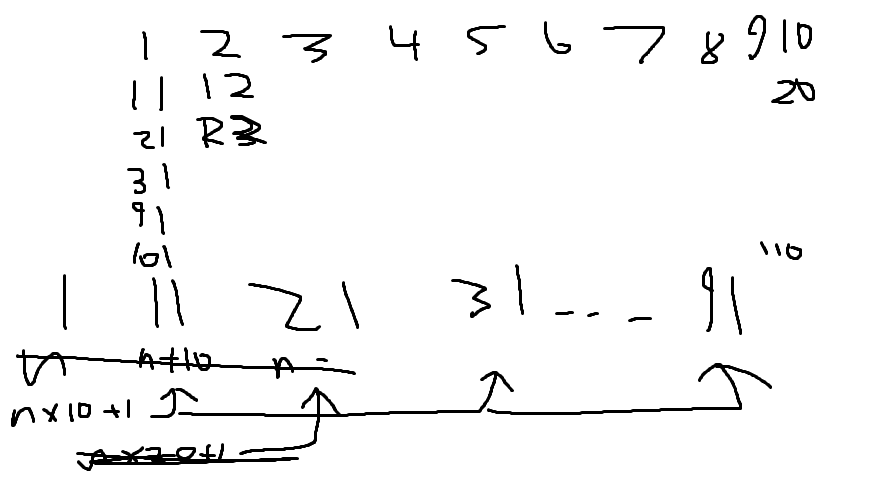 1 2 3 4 5 6 7 8 9 10
11 12 20
21
31
91
101
110
1 11 21 31 - - - 91
n n+10 n -
n x 10 + 1
n x 20 + 1